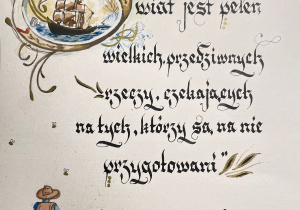 wiat jest pełen
wielkich, przedziwnych
rzeczy, czekających
na tych, którzy są na nie
przygotowani"